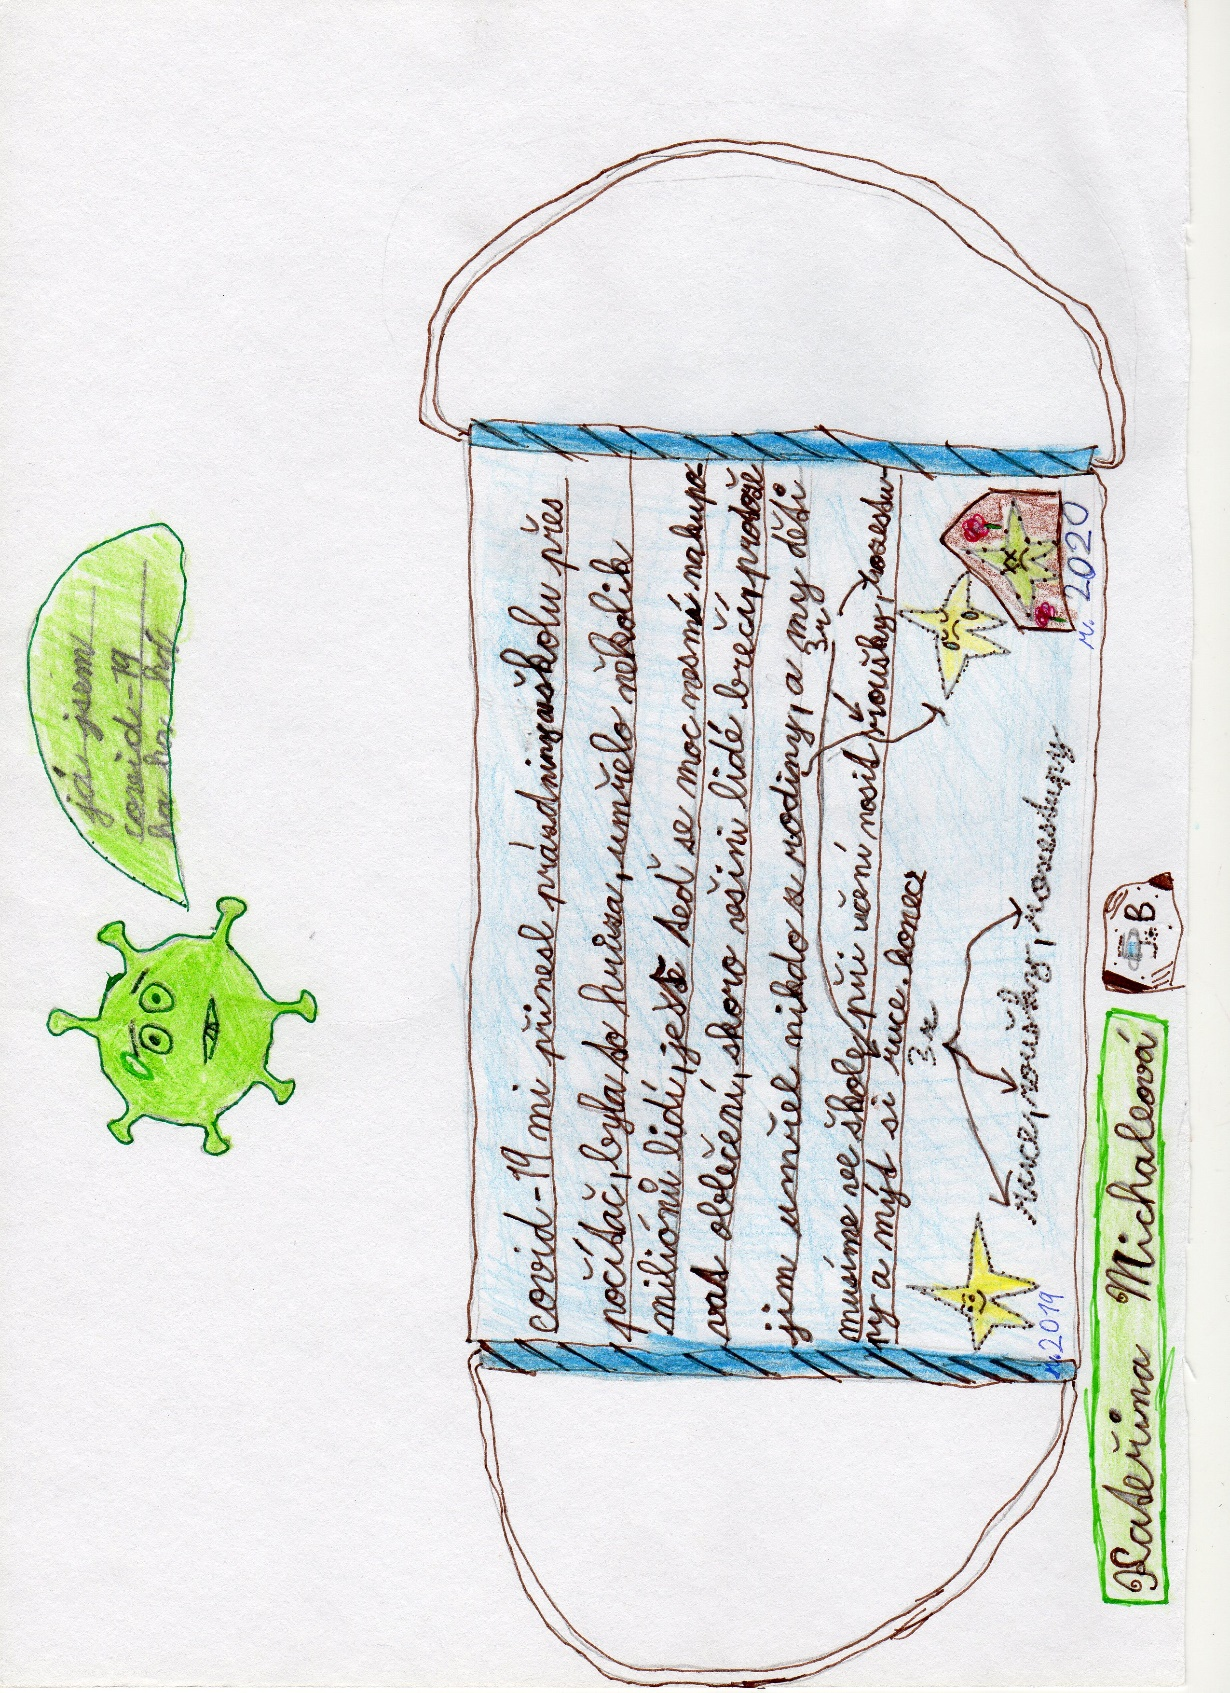 já jsem
covid-19
ha ha, ha
covid-19 mi přinesl prázdniny a školu přes
počítač, byla to hrůza, umřelo několik
miliónů lidí, ještě teď se moc nesmí nakupo-
vat oblečení, skoro všini lidé brečí, protože
jim umřel nikdo s rodiny, a my děti
3r
musíme ve škole při učení nosit roušky, rozestu-
py a mýt si ruce. konec
3r
ruce, roušky, rozestupy
r. 2019
r. 2020
Kateřina Michalcová
B